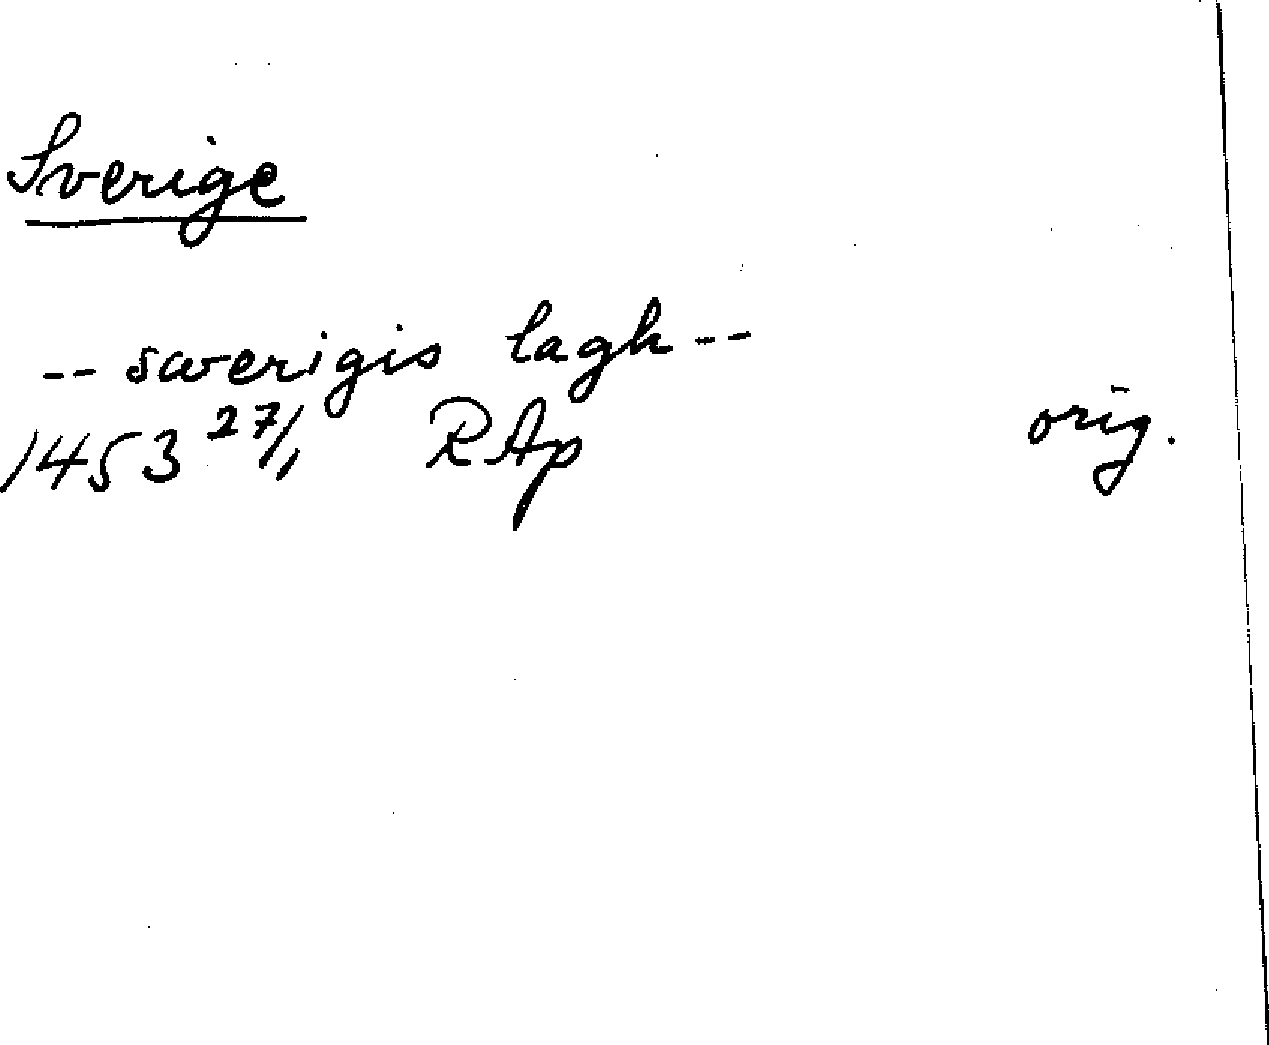 Sverige
-- swerigis lagh --
1453 27/1 RAp orig.